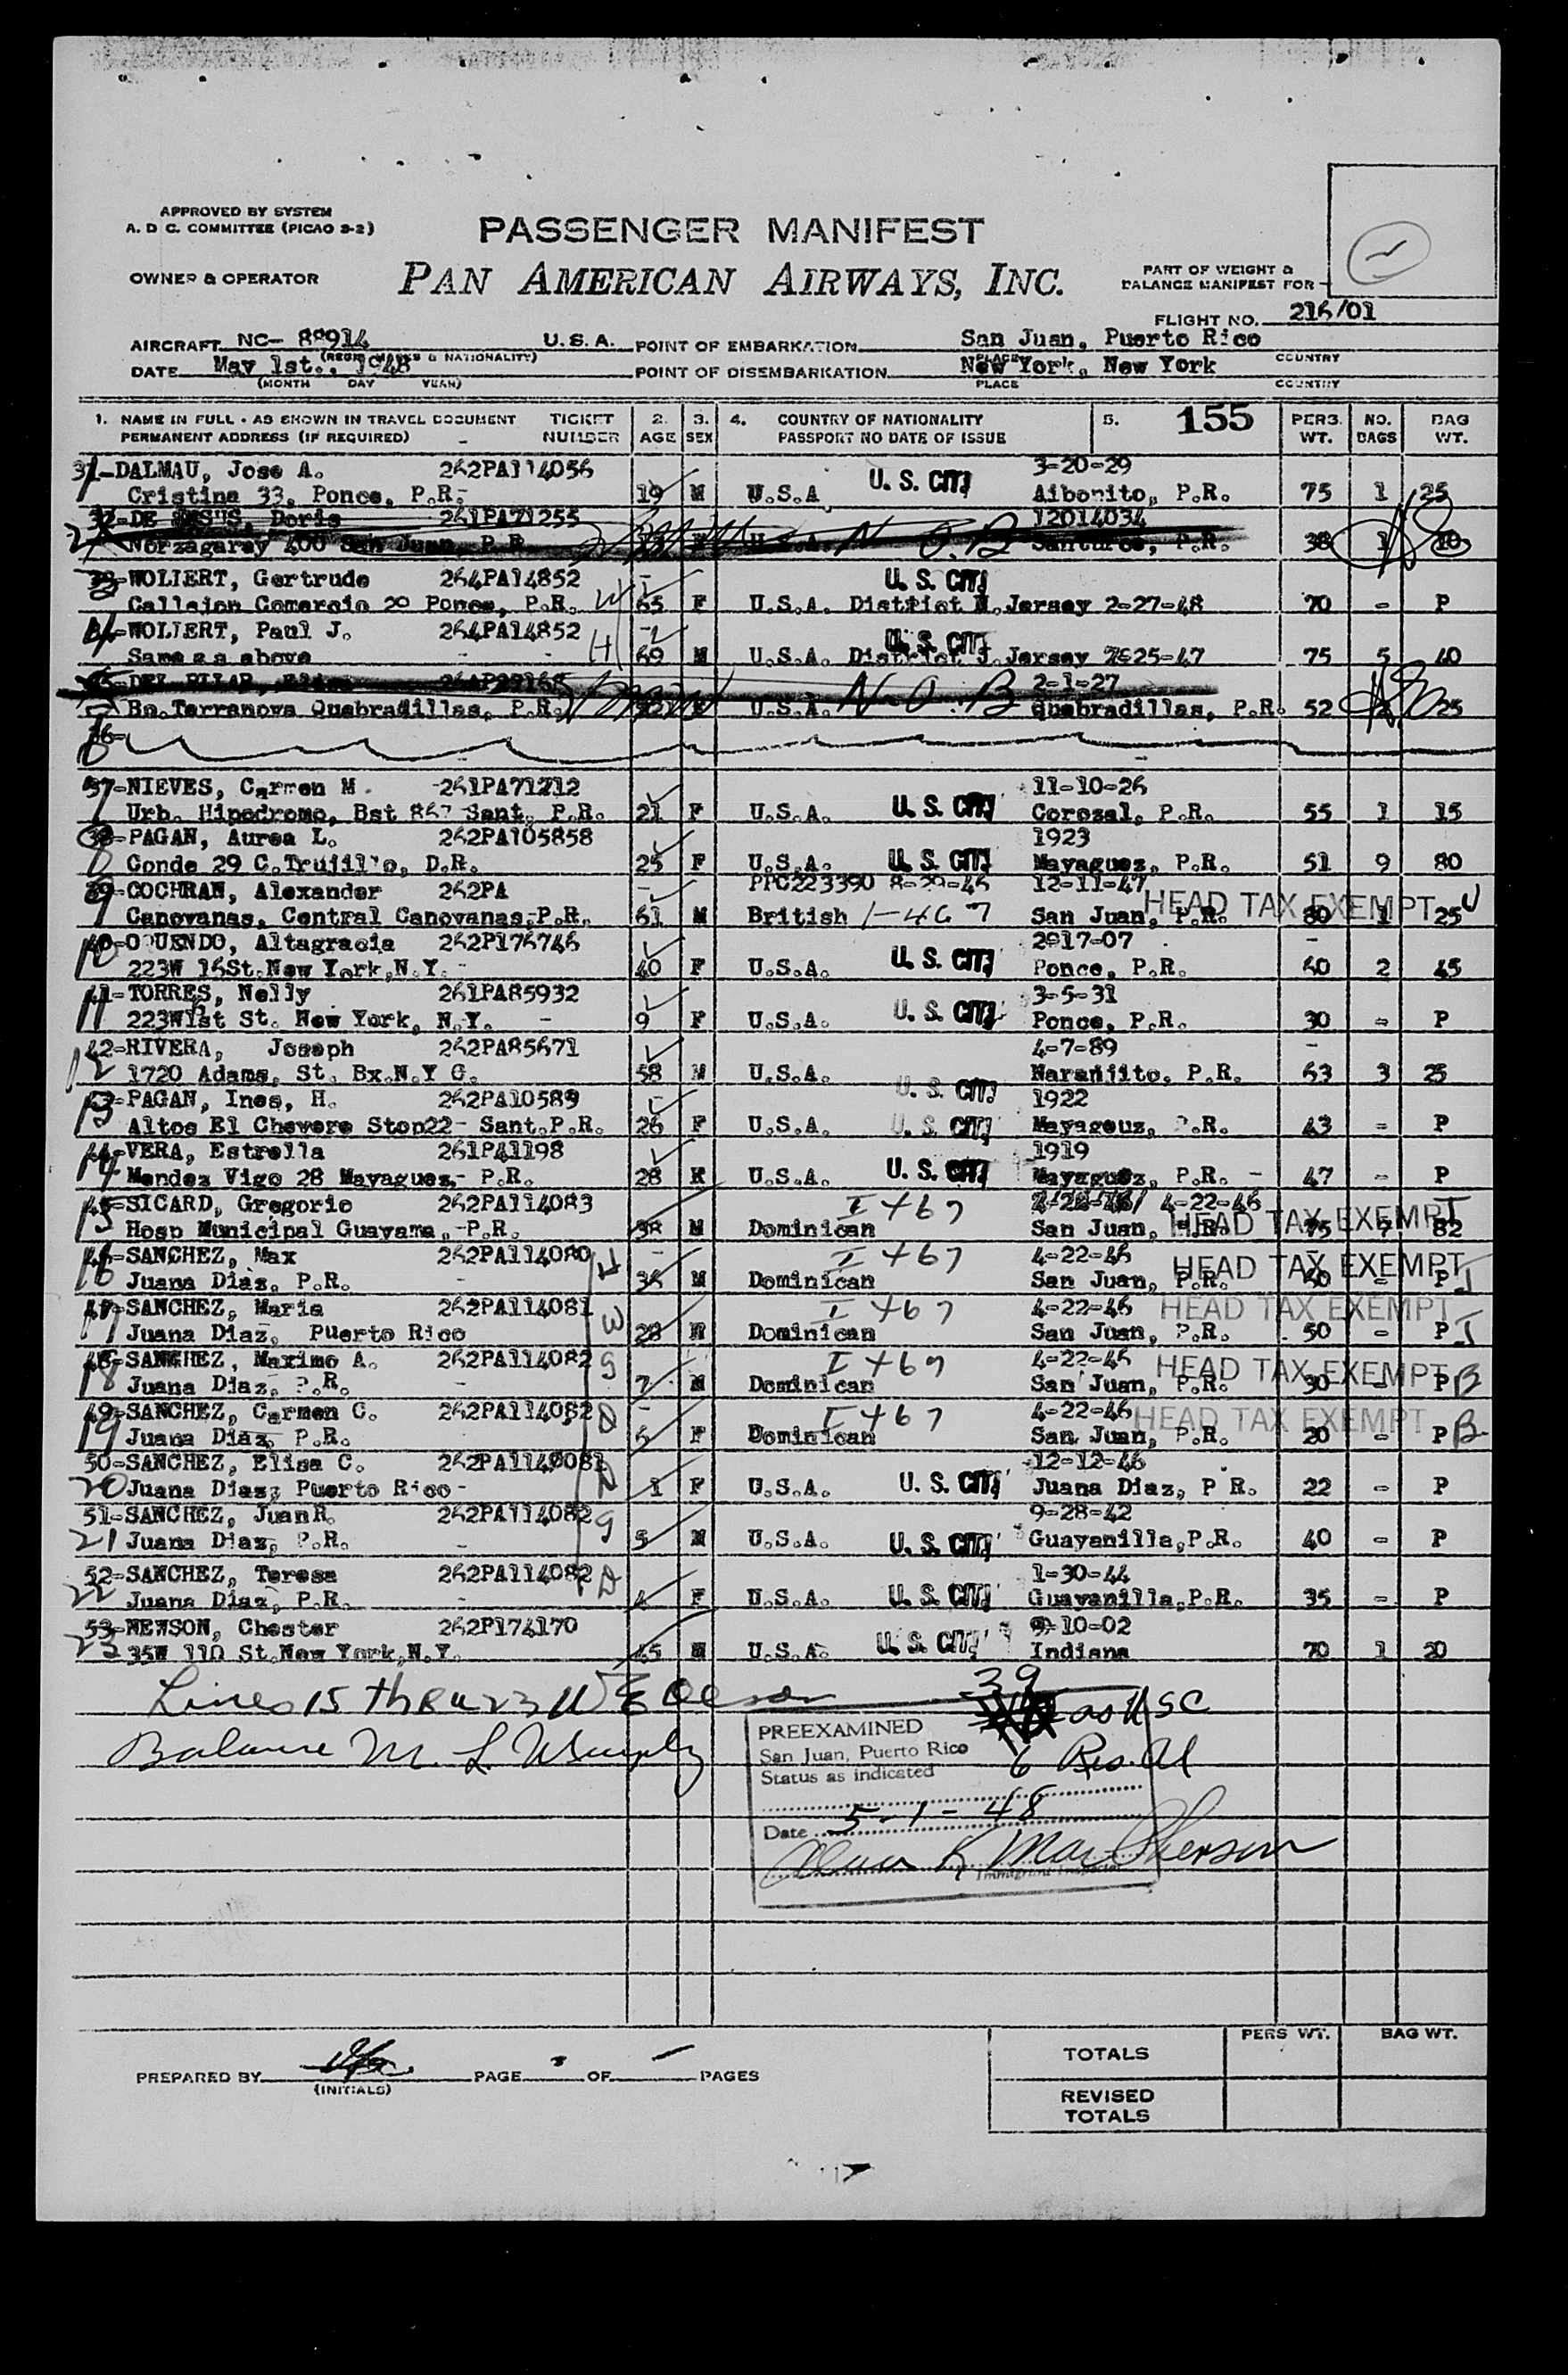 APPROVED BY SYSTEM
A. D C. COMMITTEE (PICAO 9-2)
PASSENGER MANIFEST
OWNER & OPERATOR
PAN AMERICAN AIRWAYS, INC.
PART OF WEIGHT &
BALANCE MANIFEST FOR
FLIGHT NO. 216/01
AIRCRAFT NC- 88914 U.S.A. POINT OF EMBARKATION San Juan, Puerto Rico
(REGIS. MARKS & NATIONALITY) PLACE COUNTRY
DATE May 1st., 1948 POINT OF DISEMBARKATION New York, New York
(MONTH DAY YEAR) PLACE COUNTRY
1. NAME IN FULL - AS SHOWN IN TRAVEL DOCUMENT TICKET 2. 3. 4. COUNTRY OF NATIONALITY 5. 155 PERS. NO. BAG
PERMANENT ADDRESS (IF REQUIRED) NUMBER AGE SEX PASSPORT NO DATE OF ISSUE WT. BAGS WT.
31-DALMAU, Jose A. 262PA114056 U. S. CIT. 3-20-29
1 Cristina 33, Ponce, P.R. 19 M U.S.A Aibonito, P.R. 75 1 25
32-DE JESUS, Doris 261PA71255 12014034
2 Norzagaray 400 San Juan, P.R. U.S.A. N.O.B Santurce, P.R. 38 1 10
33-WOLIERT, Gertrude 264PA14852 U. S. CIT.
3 Callejon Comercio 20 Ponce, P.R. W 65 F U.S.A. District N.Jersey 2-27-48 70 - P
34-WOLIERT, Paul J. 264PA14852 U. S. CIT.
4 Same as above H 69 M U.S.A. District J. Jersey 25-47 75 5 40
35-DEL PILAR, 2-1-27
5 Bo.Terranova Quebradillas, P.R. U.S.A. N.O.B Quebradillas, P.R. 52 25
36-
6
37-NIEVES, Carmen M. 261PA71212 11-10-26
7 Urb. Hipodromo, Bst 867 Sant. P.R. 21 F U.S.A. U. S. CIT. Corozal, P.R. 55 1 15
38-PAGAN, Aurea L. 262PA105858 1923
8 Conde 29 C.Trujillo, D.R. 25 F U.S.A. U. S. CIT. Mayaguez, P.R. 51 9 80
39-COCHRAN, Alexander 262PA PPC223390 8-29-46 12-11-47
9 Canovanas, Central Canovanas,P.R. 61 M British 1-467 San Juan, P.R. HEAD TAX EXEMPT 80 1 25
40-OQUENDO, Altagracia 262P176746 2017-07
10 223W 16St.New York,N.Y. 40 F U.S.A. U. S. CIT. Ponce, P.R. 60 2 45
41-TORRES, Nelly 261PA85932 3-5-31
11 223W1st St. New York, N.Y. 9 F U.S.A. U. S. CIT. Ponce, P.R. 30 - P
42-RIVERA, Joseph 262PA85671 4-7-89
12 1720 Adams, St. Bx.N.Y C. 58 M U.S.A. U. S. CIT. Naranjito, P.R. 63 3 25
43-PAGAN, Ines, H. 262PA10589 1922
13 Altos El Chevere Stop22- Sant.P.R. 26 F U.S.A. U. S. CIT. Mayageuz, P.R. 43 - P
44-VERA, Estrella 261PA1198 1919
14 Mendez Vigo 28 Mayaguez,- P.R. 28 U.S.A. U. S. CIT. Mayaguez, P.R. 47 - P
45-SICARD, Gregorio 262PA114083 I 467 4-22-46
15 Hosp Municipal Guayama, P.R. 38 M Dominican San Juan, P.R. HEAD TAX EXEMPT 75 7 82
46-SANCHEZ, Max 262PA114080 H I 467 4-22-46
16 Juana Diaz, P.R. 36 M Dominican San Juan, P.R. HEAD TAX EXEMPT - P
47-SANCHEZ, Maria 262PA114081 W I 467 4-22-46
17 Juana Diaz, Puerto Rico 28 Dominican San Juan, P.R. HEAD TAX EXEMPT 50 - P
48-SANCHEZ, Maximo A. 262PA114082 S I 467 4-22-46
18 Juana Diaz, P.R. 7 M Dominican San Juan, P.R. HEAD TAX EXEMPT 30 - P B
49-SANCHEZ, Carmen C. 262PA114082 D I 467 4-22-46
19 Juana Diaz, P.R. 5 F Dominican San Juan, P.R. HEAD TAX EXEMPT 20 - P B
50-SANCHEZ, Elisa C. 262PA1140081 D 12-12-46
20 Juana Diaz, Puerto Rico- 1 F U.S.A. U. S. CIT. Juana Diaz, P R. 22 - P
51-SANCHEZ, Juan R. 262PA114082 S 9-28-42
21 Juana Diaz, P.R. 5 M U.S.A. U. S. CIT. Guayanilla,P.R. 40 - P
52-SANCHEZ, Teresa 262PA114082 D 1-30-44
22 Juana Diaz, P.R. 4 F U.S.A. U. S. CIT. Guayanilla,P.R. 35 - P
53-NEWSON, Chester 262P174170 9-10-02
23 35W 110 St.New York,N.Y. 45 M U.S.A. U. S. CIT. Indiana 70 1 20
Lines 15 thru 23 W E Olson 39
as USC
Balance M. L. Murphy
PREEXAMINED
San Juan, Puerto Rico 6 Res. Al
Status as indicated
Date 5-1-48
Immigrant Inspector
PERS WT. BAG WT.
TOTALS
PREPARED BY PAGE OF PAGES
(INITIALS)
REVISED
TOTALS